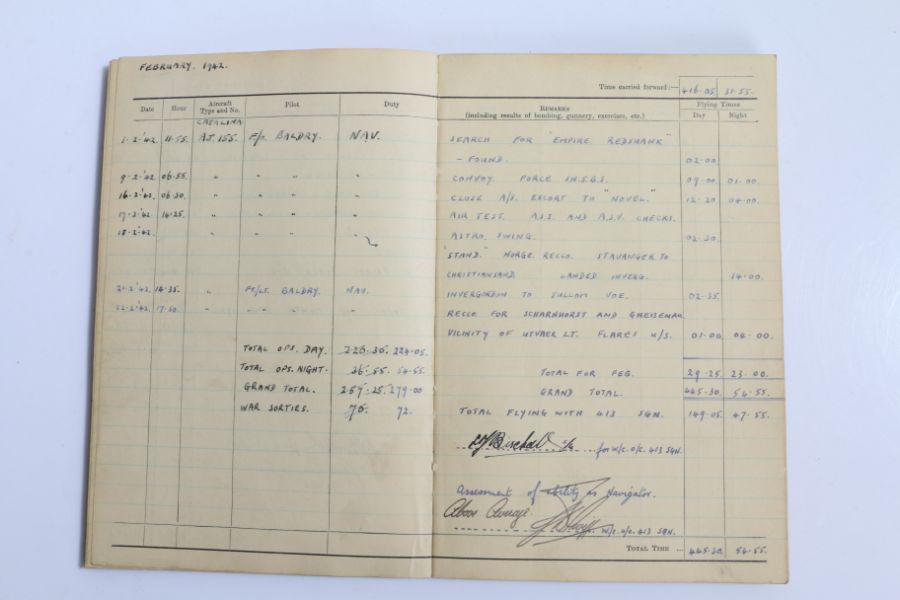 FEBRUARY. 1942.
Date Hour Aircraft Type and No. Pilot Duty
CATALINA
1-2-'42. 11-55. AJ.155. F/O. BALDRY. NAV.
9-2-'42 06.55. " " " "
16-2-'42. 06.30. " " " "
17-2-'42. 14.25. " " " "
18-2-'42. " " " "
21-2-'42. 14.35. " FT/LT. BALDRY. NAV.
22-2-'42. 17.50. " " " "
TOTAL OPS. DAY. 224.05.
TOTAL OPS. NIGHT. 54.55.
GRAND TOTAL. 279.00
WAR SORTIES. 72.
Time carried forward:— 416.05. 31.55.
Remarks
(including results of bombing, gunnery, exercises, etc.)
Flying Times
Day Night
SEARCH FOR "EMPIRE REDSHANK"
- FOUND. 02.00.
CONVOY. FORCE 09.00. 01.00.
CLOSE A/S. ESCORT TO "NOVEL." 12.20. 04.00.
AIR TEST. A.S.I. AND A.S.V. CHECKS.
ASTRO. SWING. 02.30.
"STAND." NORGE. RECCO. STAVANGER TO
CHRISTIANSAND. LANDED INVERG. 14.00.
INVERGORDON TO SULLOM VOE. 02.35.
RECCO FOR SCHARNHORST AND GNEISENAU
VICINITY OF UTVAER LT. FLARES U/S. 01.00. 04.00.
TOTAL FOR FEB. 29.25. 23.00.
GRAND TOTAL. 445.30. 54.55.
TOTAL FLYING WITH 413 SQN. 149.05. 47.55.
for W/C. O/C. 413 SQN.
Assessment of ability as Navigator.
Above Average.
W/C. O/C. 413 SQN.
Total Time ... 445.30. 54.55.